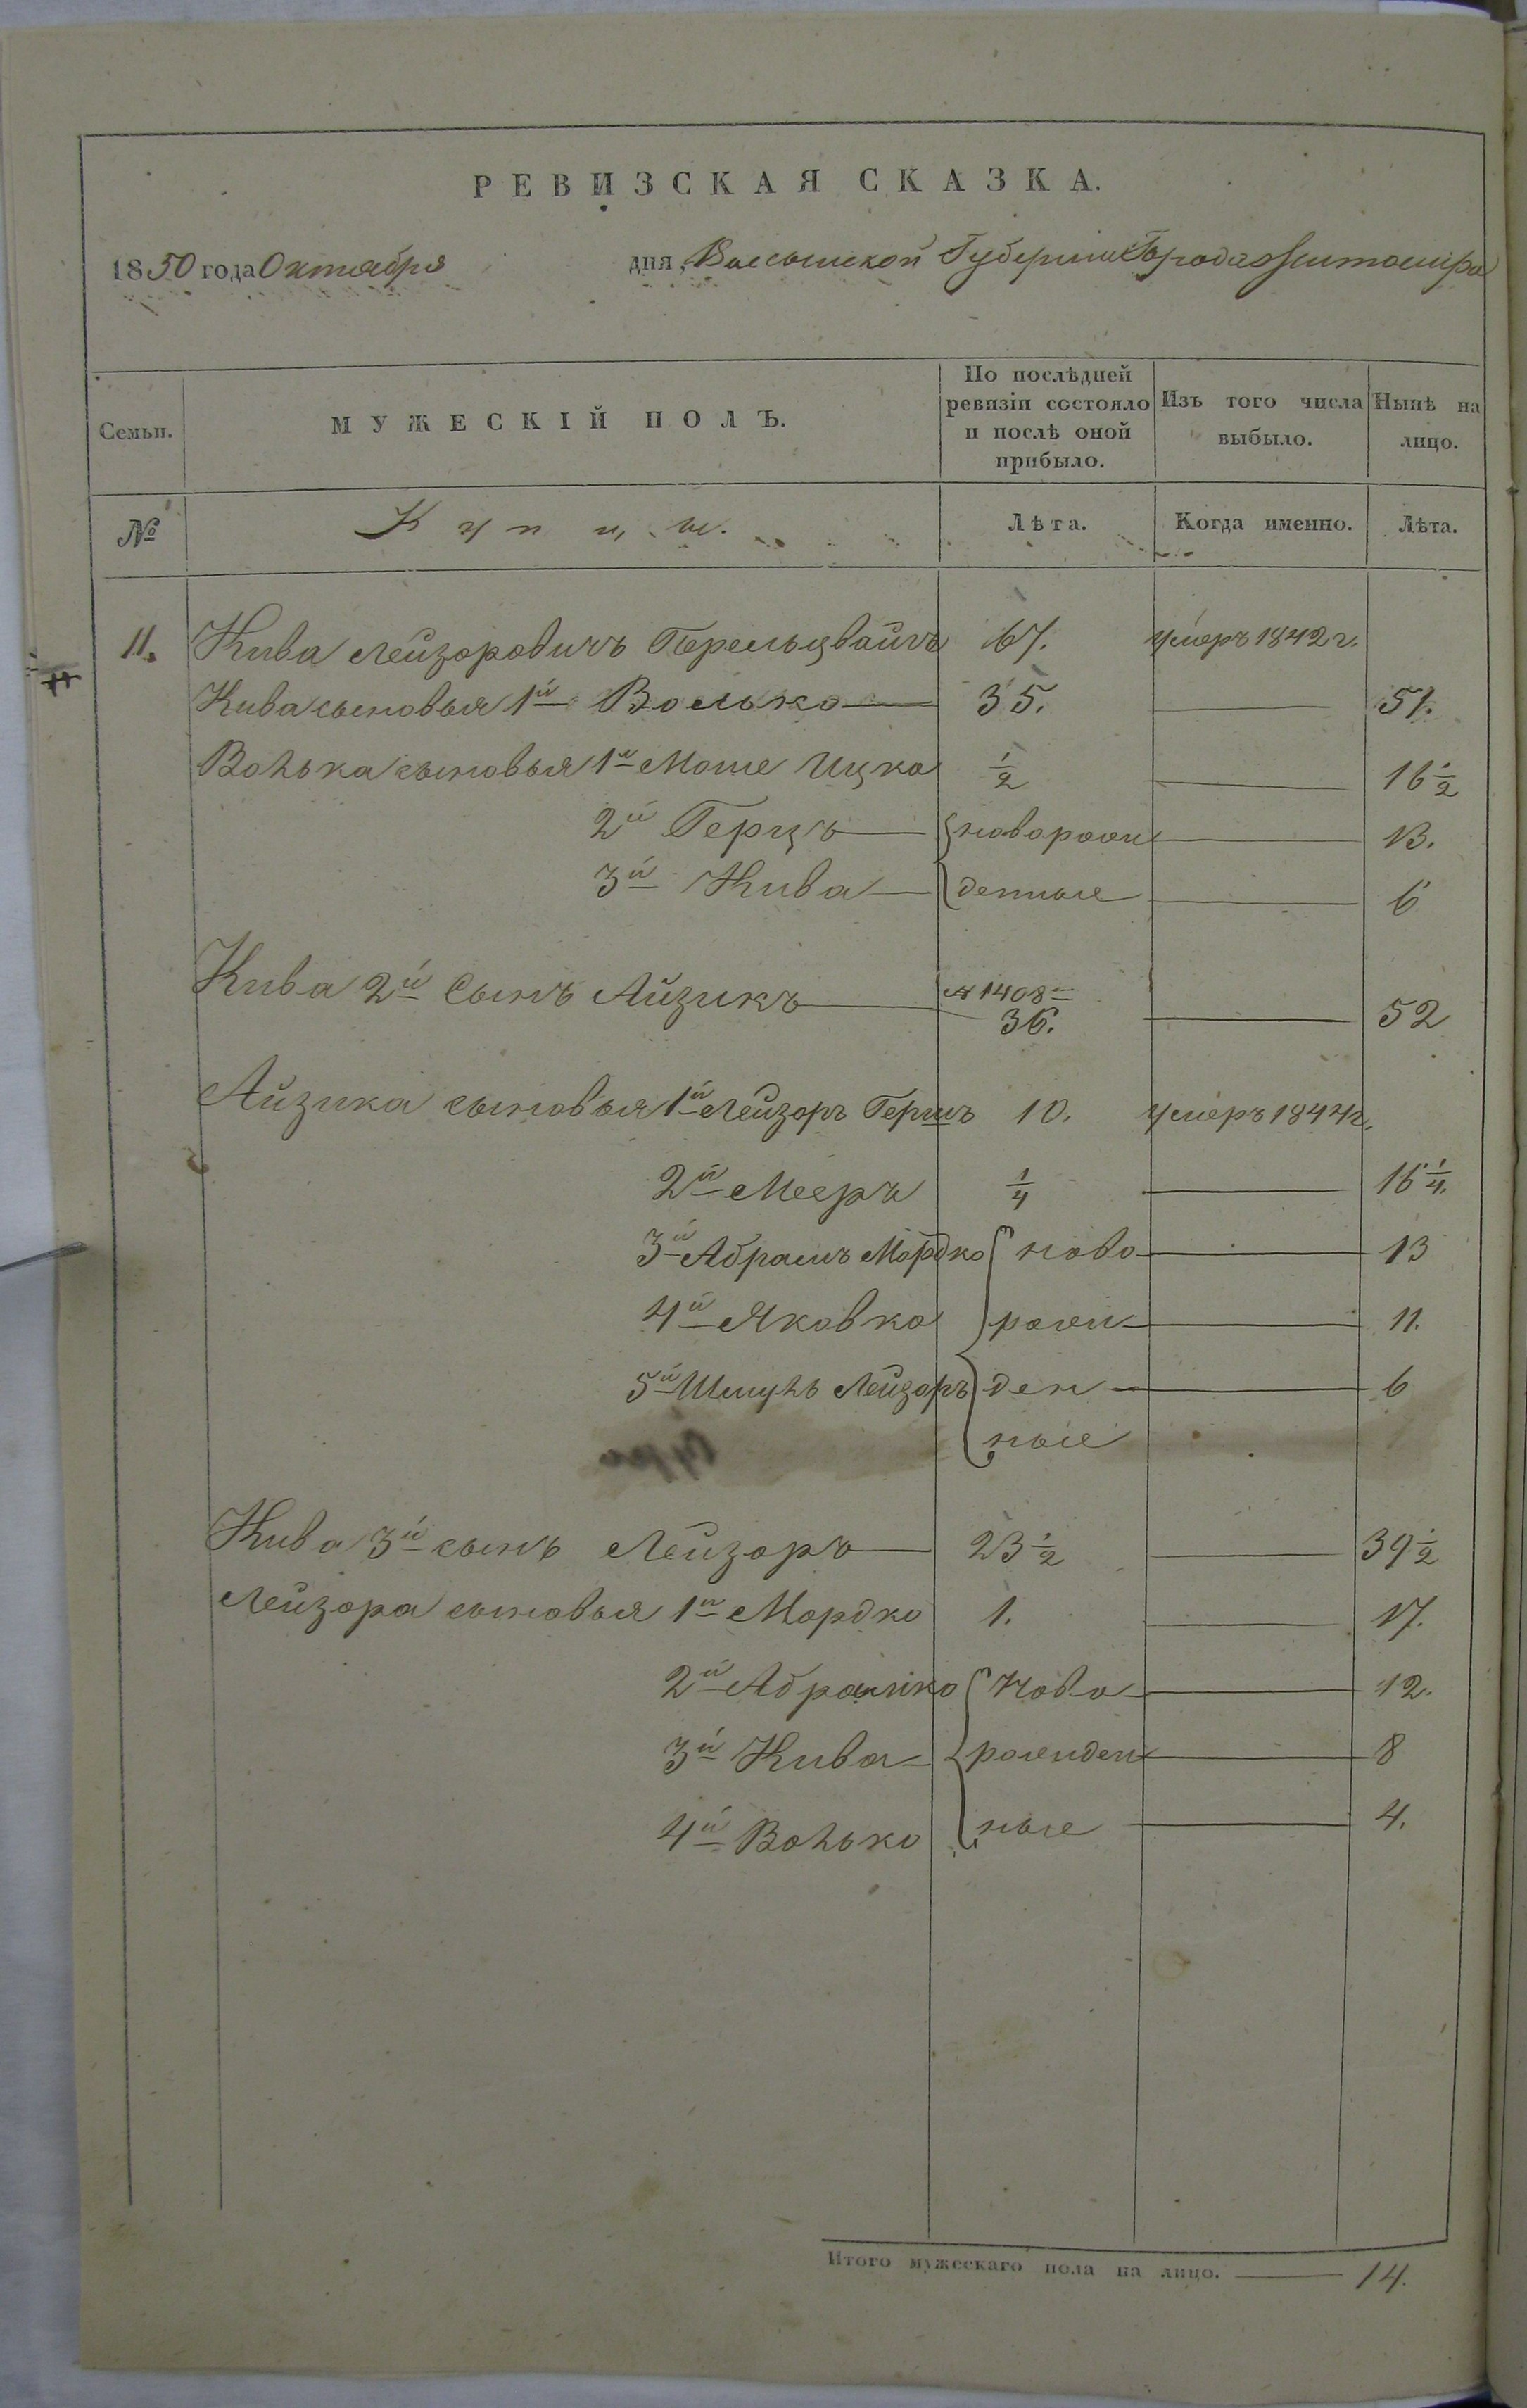 РЕВИЗСКАЯ СКАЗКА.
1850 года Октября дня, Волынской Губернии Города Житомира
Семьи. МУЖЕСКІЙ ПОЛЪ. По послѣдней ревизіи состояло и послѣ оной прибыло. Изъ того числа выбыло. Нынѣ на лицо.
№ Купцы. Лѣта. Когда именно. Лѣта.
11. Кива Лейзоровичъ Перельцвайгъ 67. умеръ 1842 г.
11
Кива сыновья 1й Волько 35. 51.
Волька сыновья 1й Моше Ицко 1/2 16 1/2
2й Герцъ новорож 13.
3й Кива денные 6
Кива 2й Сынъ Айзикъ № 1408 36. 52
Айзика сыновья 1й Лейзоръ Гершъ 10. умеръ 1844 г.
2й Мееръ 1/4 16 1/4.
3й Абрамъ Мордко ново 13
4й Яковко рож 11.
5й Шмуль Лейзоръ ден 6
ные
Кива 3й сынъ Лейзоръ 23 1/2 39 1/2
Лейзора сыновья 1й Мордко 1. 17.
2й Абрамко Ново 12.
3й Кива рожден 8
4й Волько ные 4.
Итого мужескаго пола на лицо. 14.